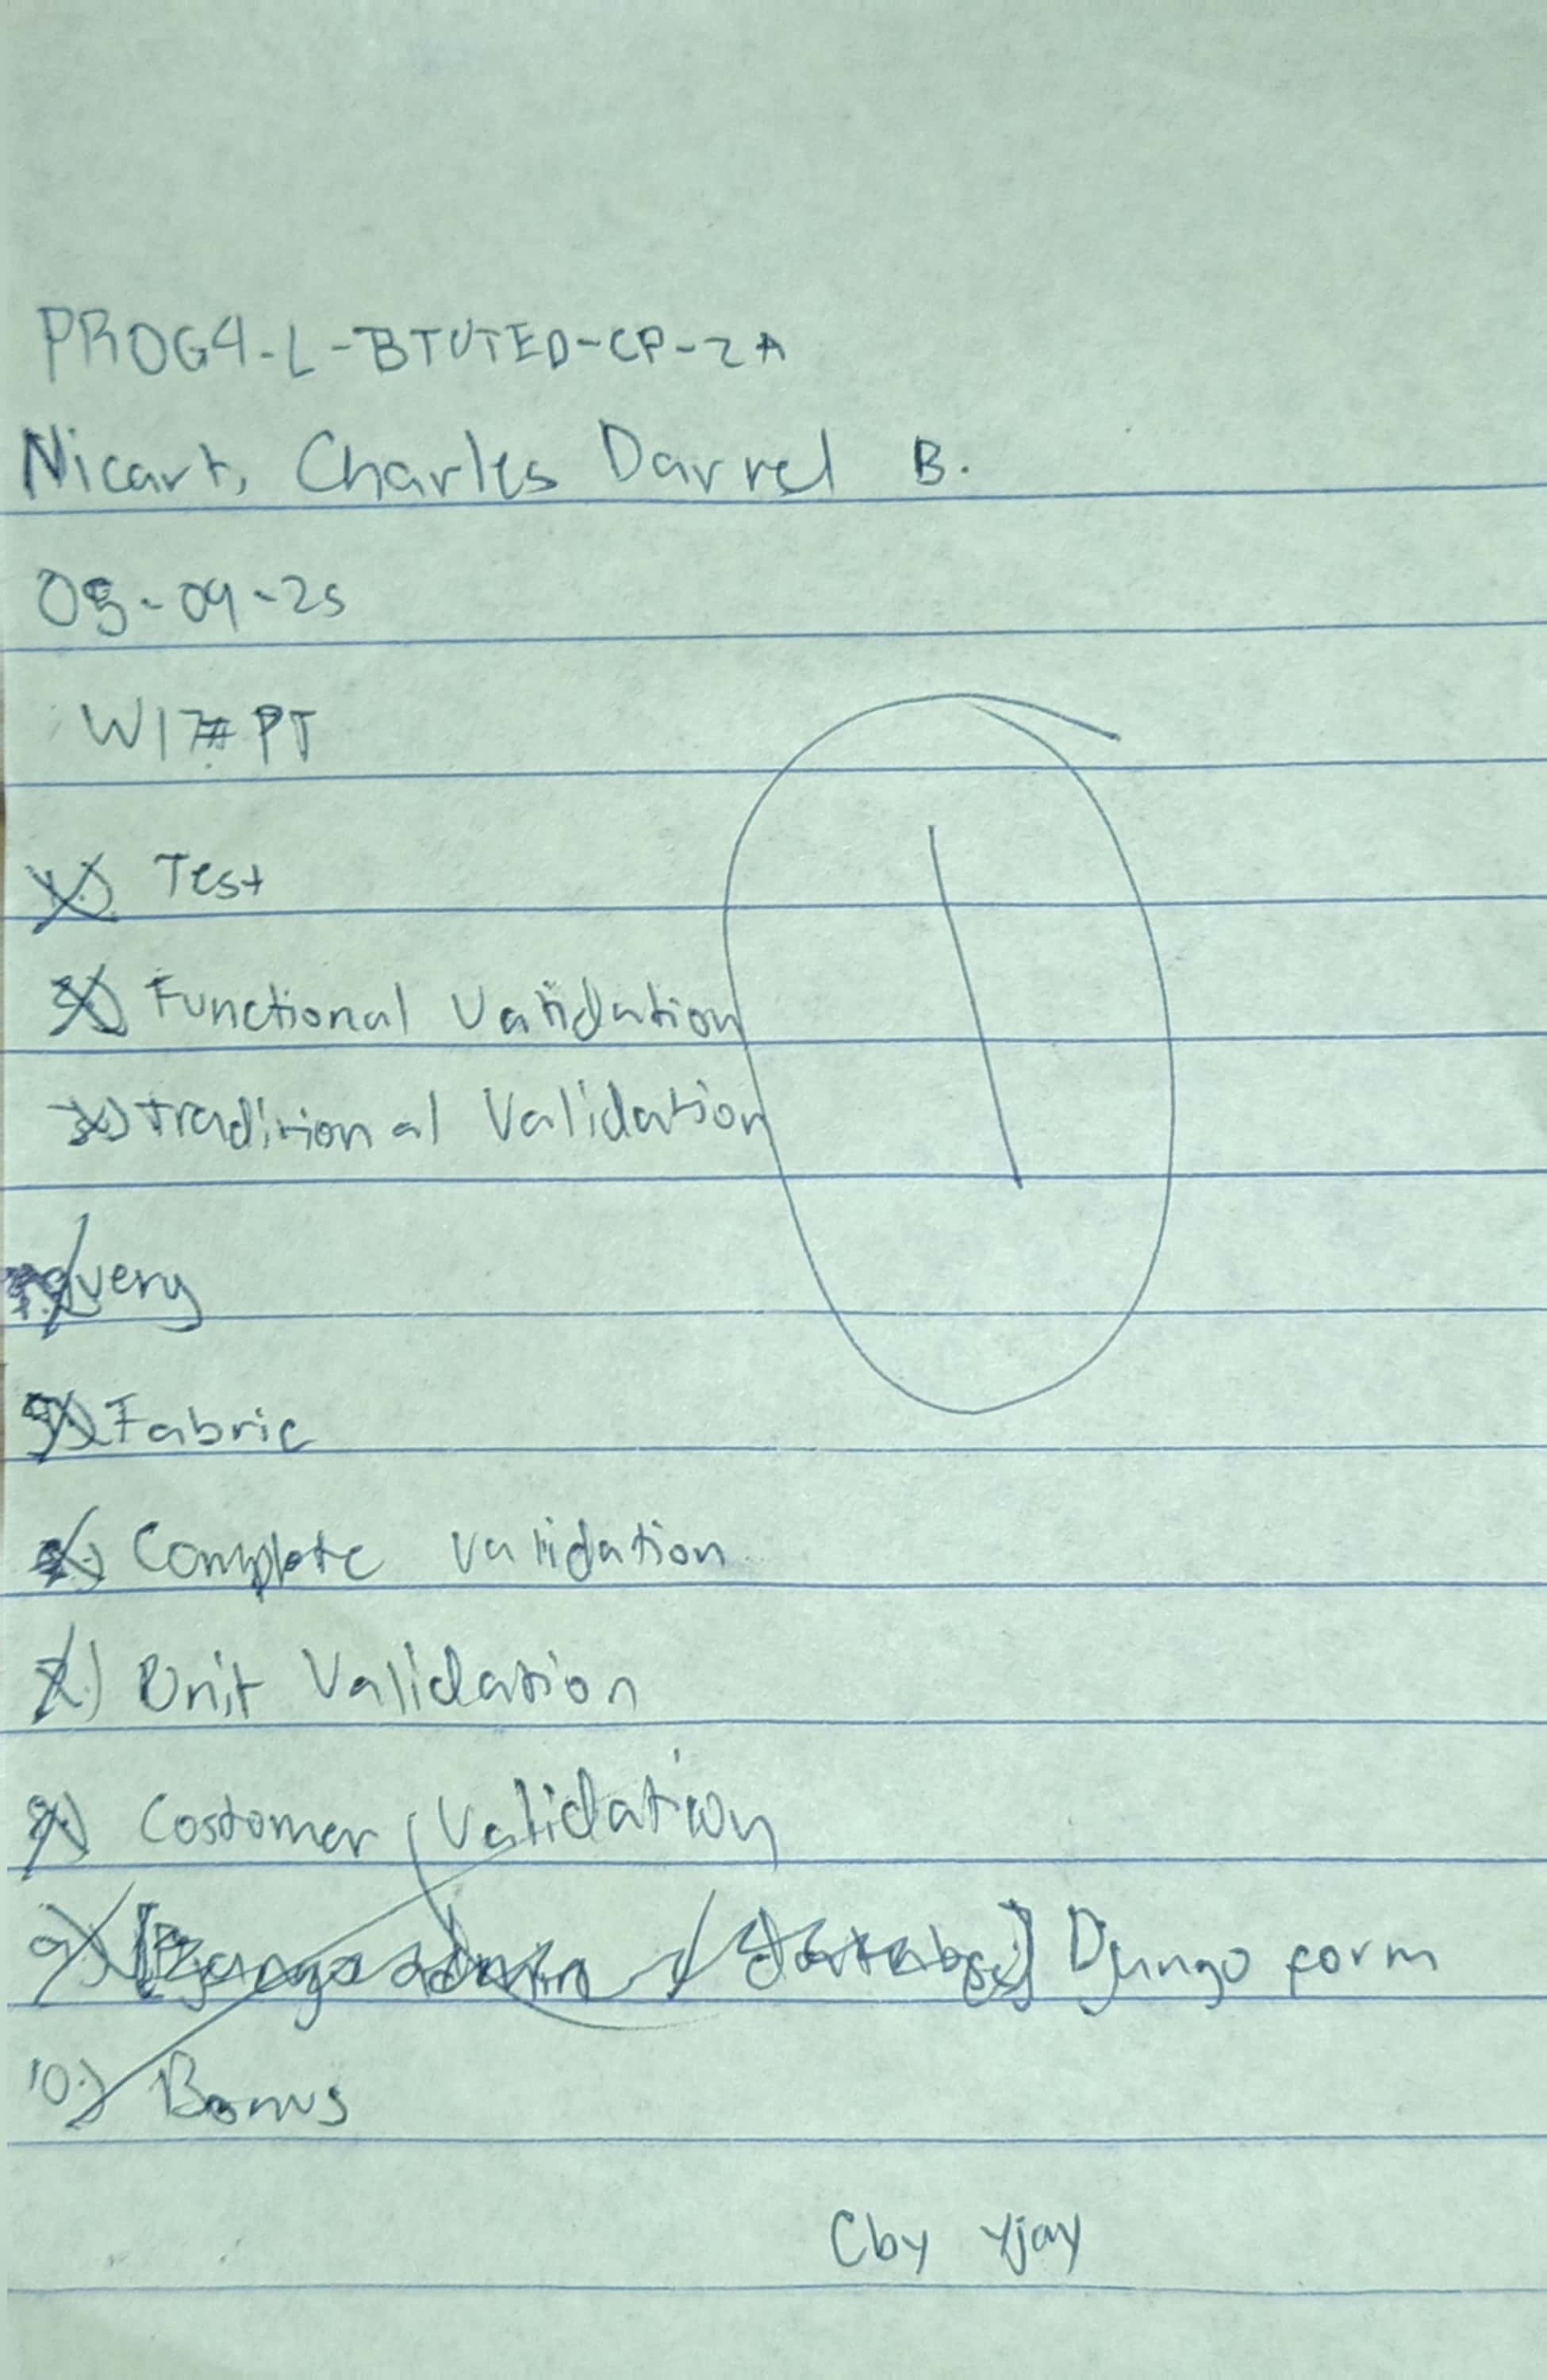 PROG4-L-BTVTED-CP-2A
Nicart, Charles Darrel B.
05-09-25
W17# PT
1
1.) Test
2.) Functional Validation
3.) Traditional Validation
4.) Query
5.) Fabric
6.) Complete Validation
7.) Unit Validation
8.) Costomer Validation
9.) [Django admin / Database] Django form
10.) Bonus
Cby Yjay